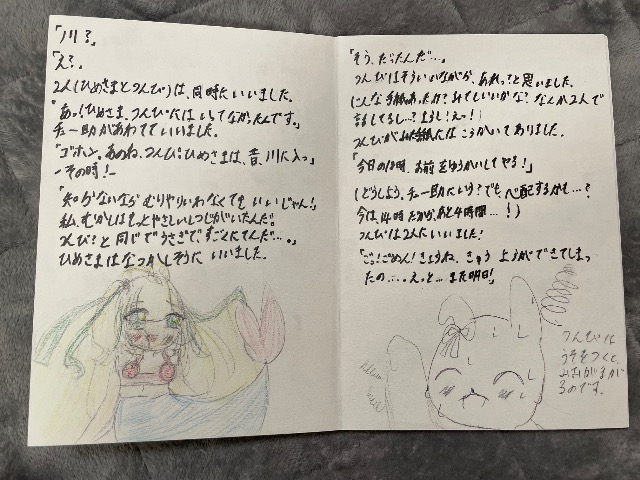 「川?」
「え?」
2人(ひめさまとつんび)は、同時にいいました。
「あっ!ひめさま、つんびにはいってなかったんです。」
チュー助があわてていいました。
「ゴホン。あのね、つんび。ひめさまは、昔、川に入っ」
ーその時!ー
「知らないならむりやりいわなくてもいいじゃん!」
私、むかしはもっとやさしいしつじがいたんだ。
つんび?と同じでうさぎですごくにてんだ…。」
ひめさまはなつかしそうにいいました。
「そう、だったんだ…。」
つんびはそういいながら、あれっ?と思いました。
(こんな手紙あったか?みてもいいかな?なんか2人で
話してるし…?よろし!えー!)
つんびがみた紙にはこうかいてありました。
「今日の18時、お前をゆうかいしてやる!」
(どうしよう。チュー助にいう?でも、心配するかも…?
今は、14時だから、あと4時間…!)
つんびは2人にいいました!
「ごっ!ごめん!きょうさ、きゅうようができてしまっ
たの…。えっと…また明日!」
つんびは
うそをつくと、
みみがまが
るのです。